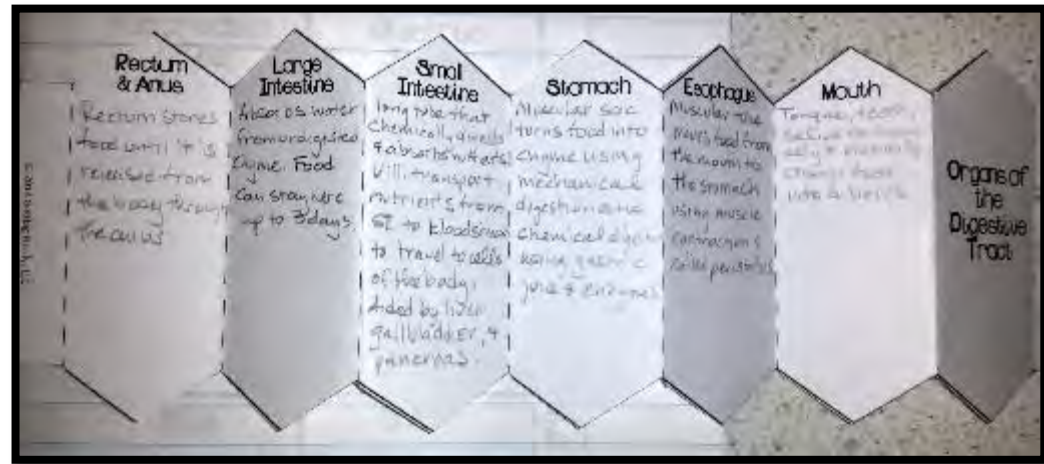 Rectum
& Anus
Rectum stores
food until it is
release from
the body through
the anus
Large
Intestine
Absorbs water
from undigested
chyme. Food
can stay here
up to 3 days.
Small
Intestine
long tube that
chemically digests
& absorbs
Villi transport
nutrients from
SI to bloodstream
to travel to cells
of the body.
Aided by liver,
gallbladder, &
pancreas.
Stomach
Muscular sac
turns food into
chyme using
mechanical
digestion and
chemical
using gastric
juice & enzymes
Esophagus
Muscular tube
moves food from
the mouth to
the stomach
using muscle
contractions
called peristalsis
Mouth
Tongue, teeth,
saliva
change food
into a bolus
Organs of
the
Digestive
Tract